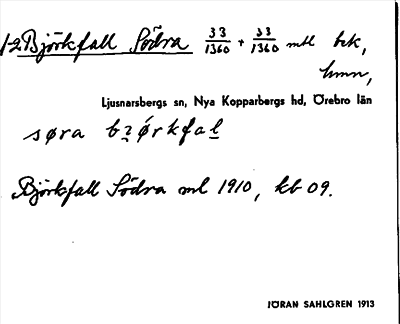 1-2 Björkfall Södra 33/1360 + 33/1360 mtl bek,
hmn,
Ljusnarsbergs sn, Nya Kopparbergs hd, Örebro län
søra bɿørkfal
Björkfall Södra ml 1910, kb 09.
JÖRAN SAHLGREN 1913